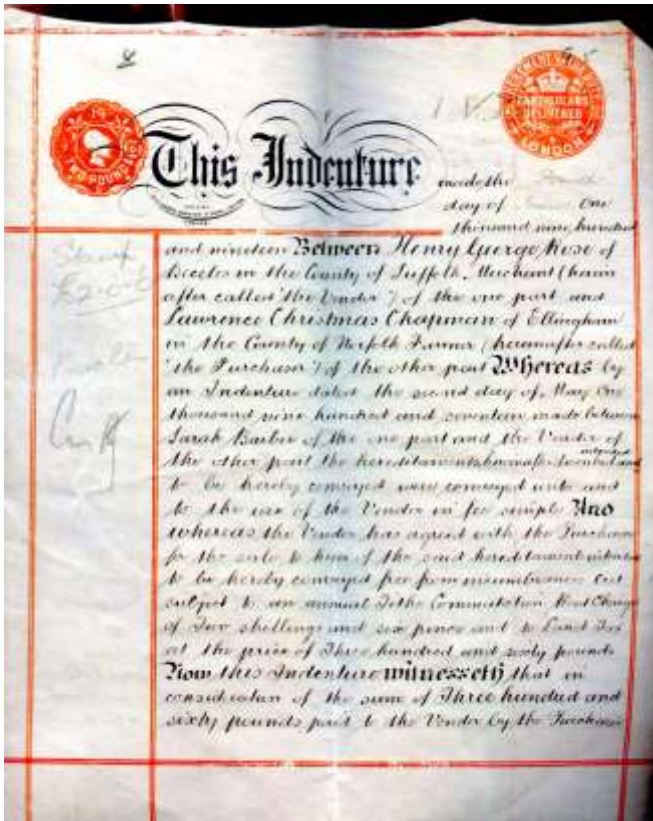 PARTICULARS
DELIVERED
LONDON
This Indenture made the
day of One
thousand nine hundred
and nineteen Between Henry George Rose of
Beccles in the County of Suffolk Merchant (herein
after called "the Vendor") of the one part and
Lawrence Christmas Chapman of Ellingham
in the County of Norfolk Farmer (hereinafter called
"the Purchaser") of the other part Whereas by
an Indenture dated the second day of May One
thousand nine hundred and seventeen made between
Sarah Barber of the one part and the Vendor of
the other part the hereditaments hereinafter described and
intended
to be hereby conveyed were conveyed unto and
to the use of the Vendor in fee simple And
whereas the Vendor has agreed with the Purchaser
for the sale to him of the said hereditaments intended
to be hereby conveyed free from incumbrances but
subject to an annual Tithe Commutation Rent Charge
of Two shillings and six pence and to Land Tax
at the price of Three hundred and sixty pounds
Now this Indenture witnesseth that in
consideration of the sum of Three hundred and
sixty pounds paid to the Vendor by the Purchaser
Stamp